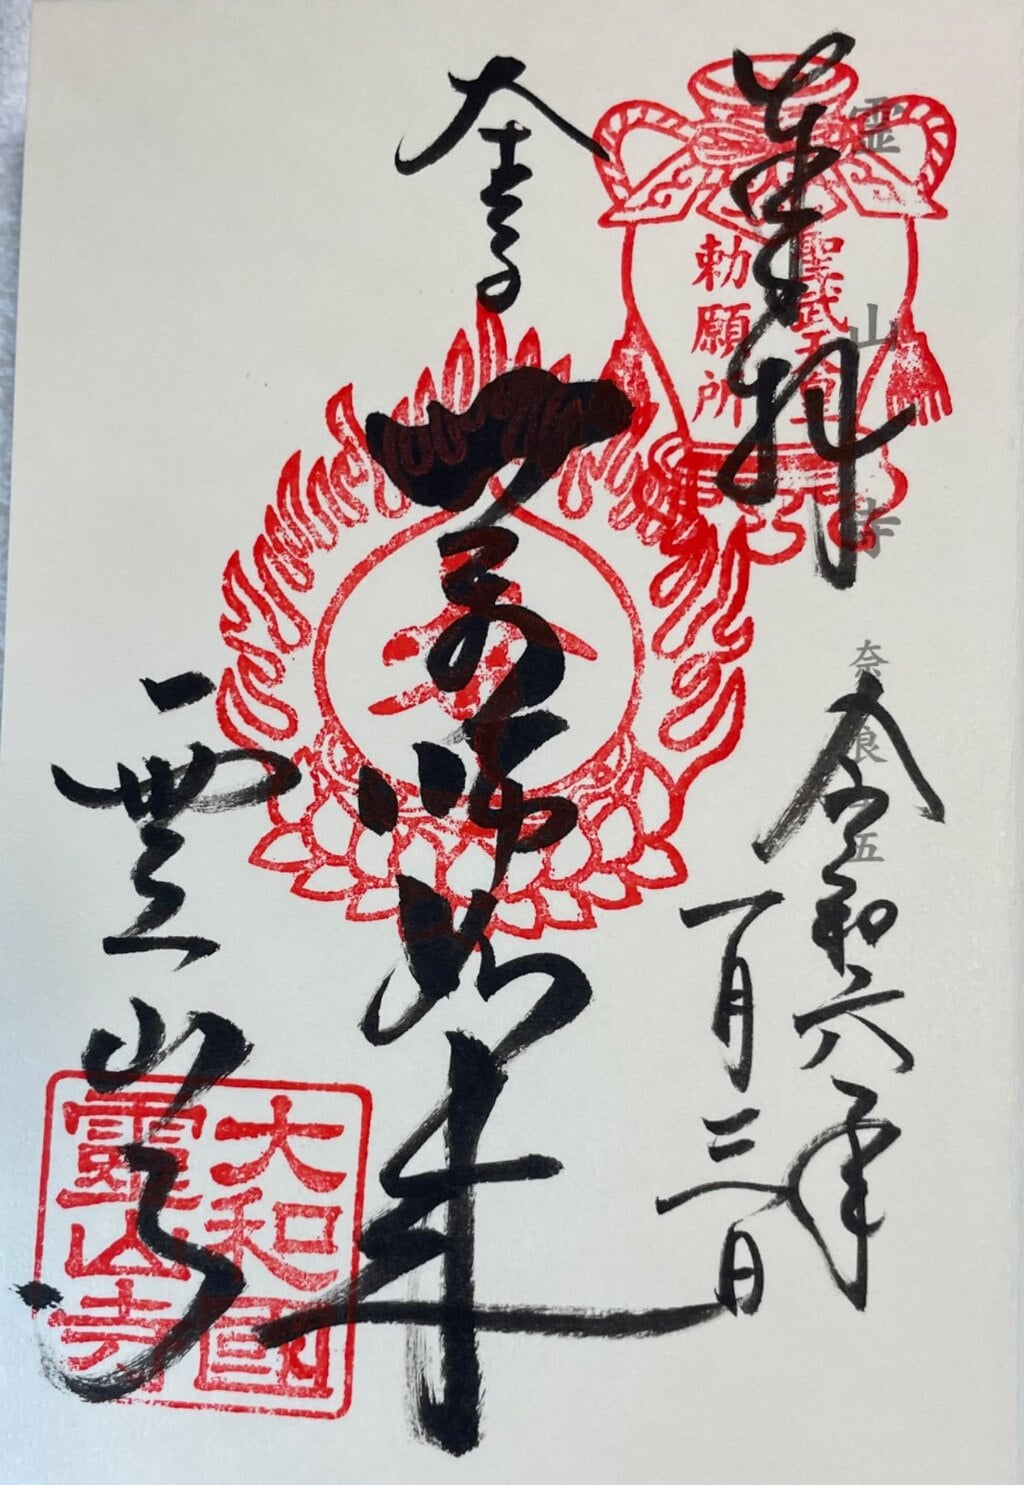 霊山寺 奈良 五
奉拝
聖武天皇
勅願所
令和六年
一月三日
薬師如来
霊山寺
大和國
靈山寺